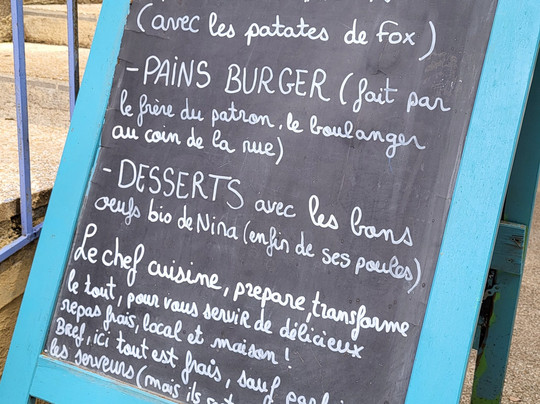 (avec les patates de Fox)
-PAINS BURGER (fait par
le frère du patron, le boulanger
au coin de la rue)
-DESSERTS avec les bons
oeufs bio de Nina (enfin de ses poules)
Le chef cuisine, prepare, transforme
le tout, pour vous servir de délicieux
repas frais, local et maison !
Bref, ici tout est frais, sauf
les serveurs (mais ils